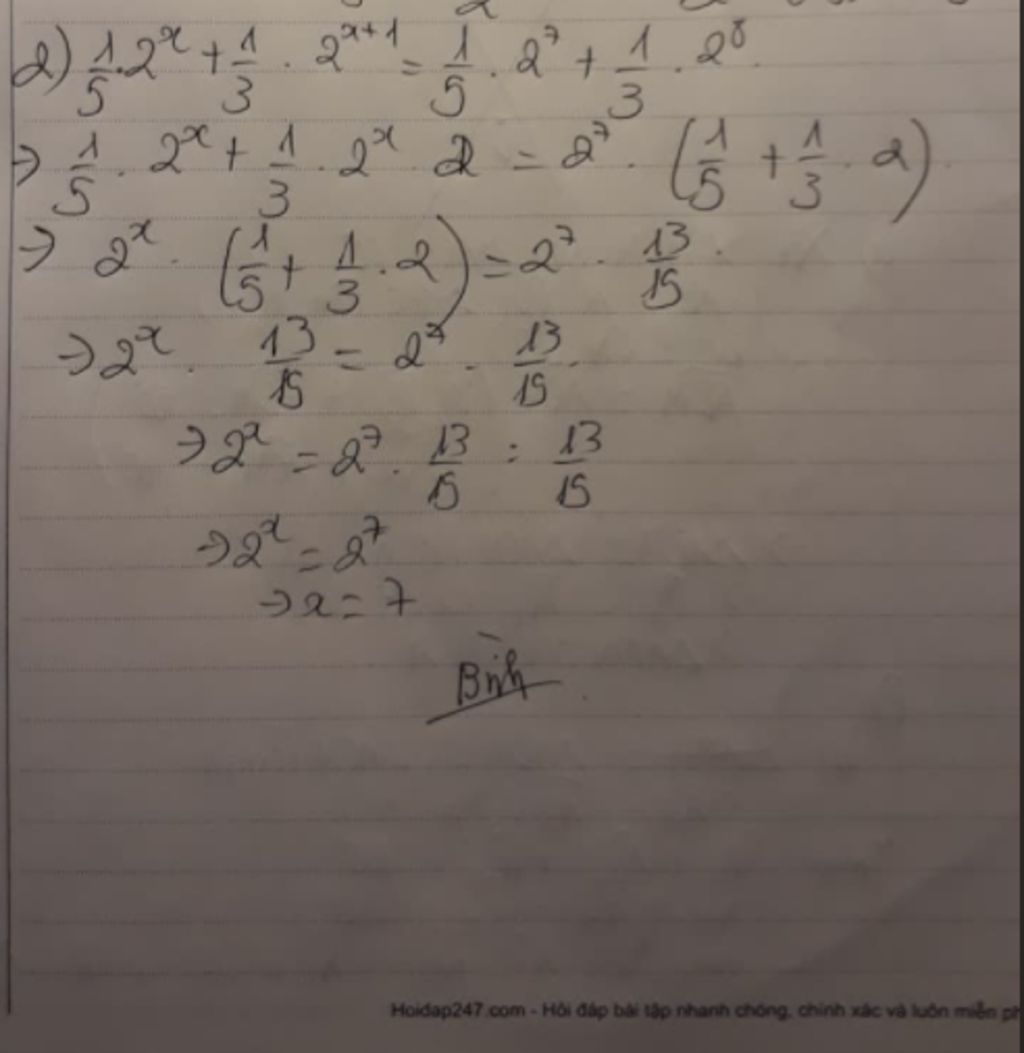 2) 1/5 . 2^x + 1/3 . 2^(x+1) = 1/5 . 2^7 + 1/3 . 2^8.
→ 1/5 . 2^x + 1/3 . 2^x . 2 = 2^7 . (1/5 + 1/3 . 2)
→ 2^x . (1/5 + 1/3 . 2) = 2^7 . 13/15.
→ 2^x . 13/15 = 2^7 . 13/15.
→ 2^x = 2^7 . 13/15 : 13/15
→ 2^x = 2^7
→ x = 7
Bình
Hoidap247.com - Hỏi đáp bài tập nhanh chóng, chính xác và luôn miễn ph